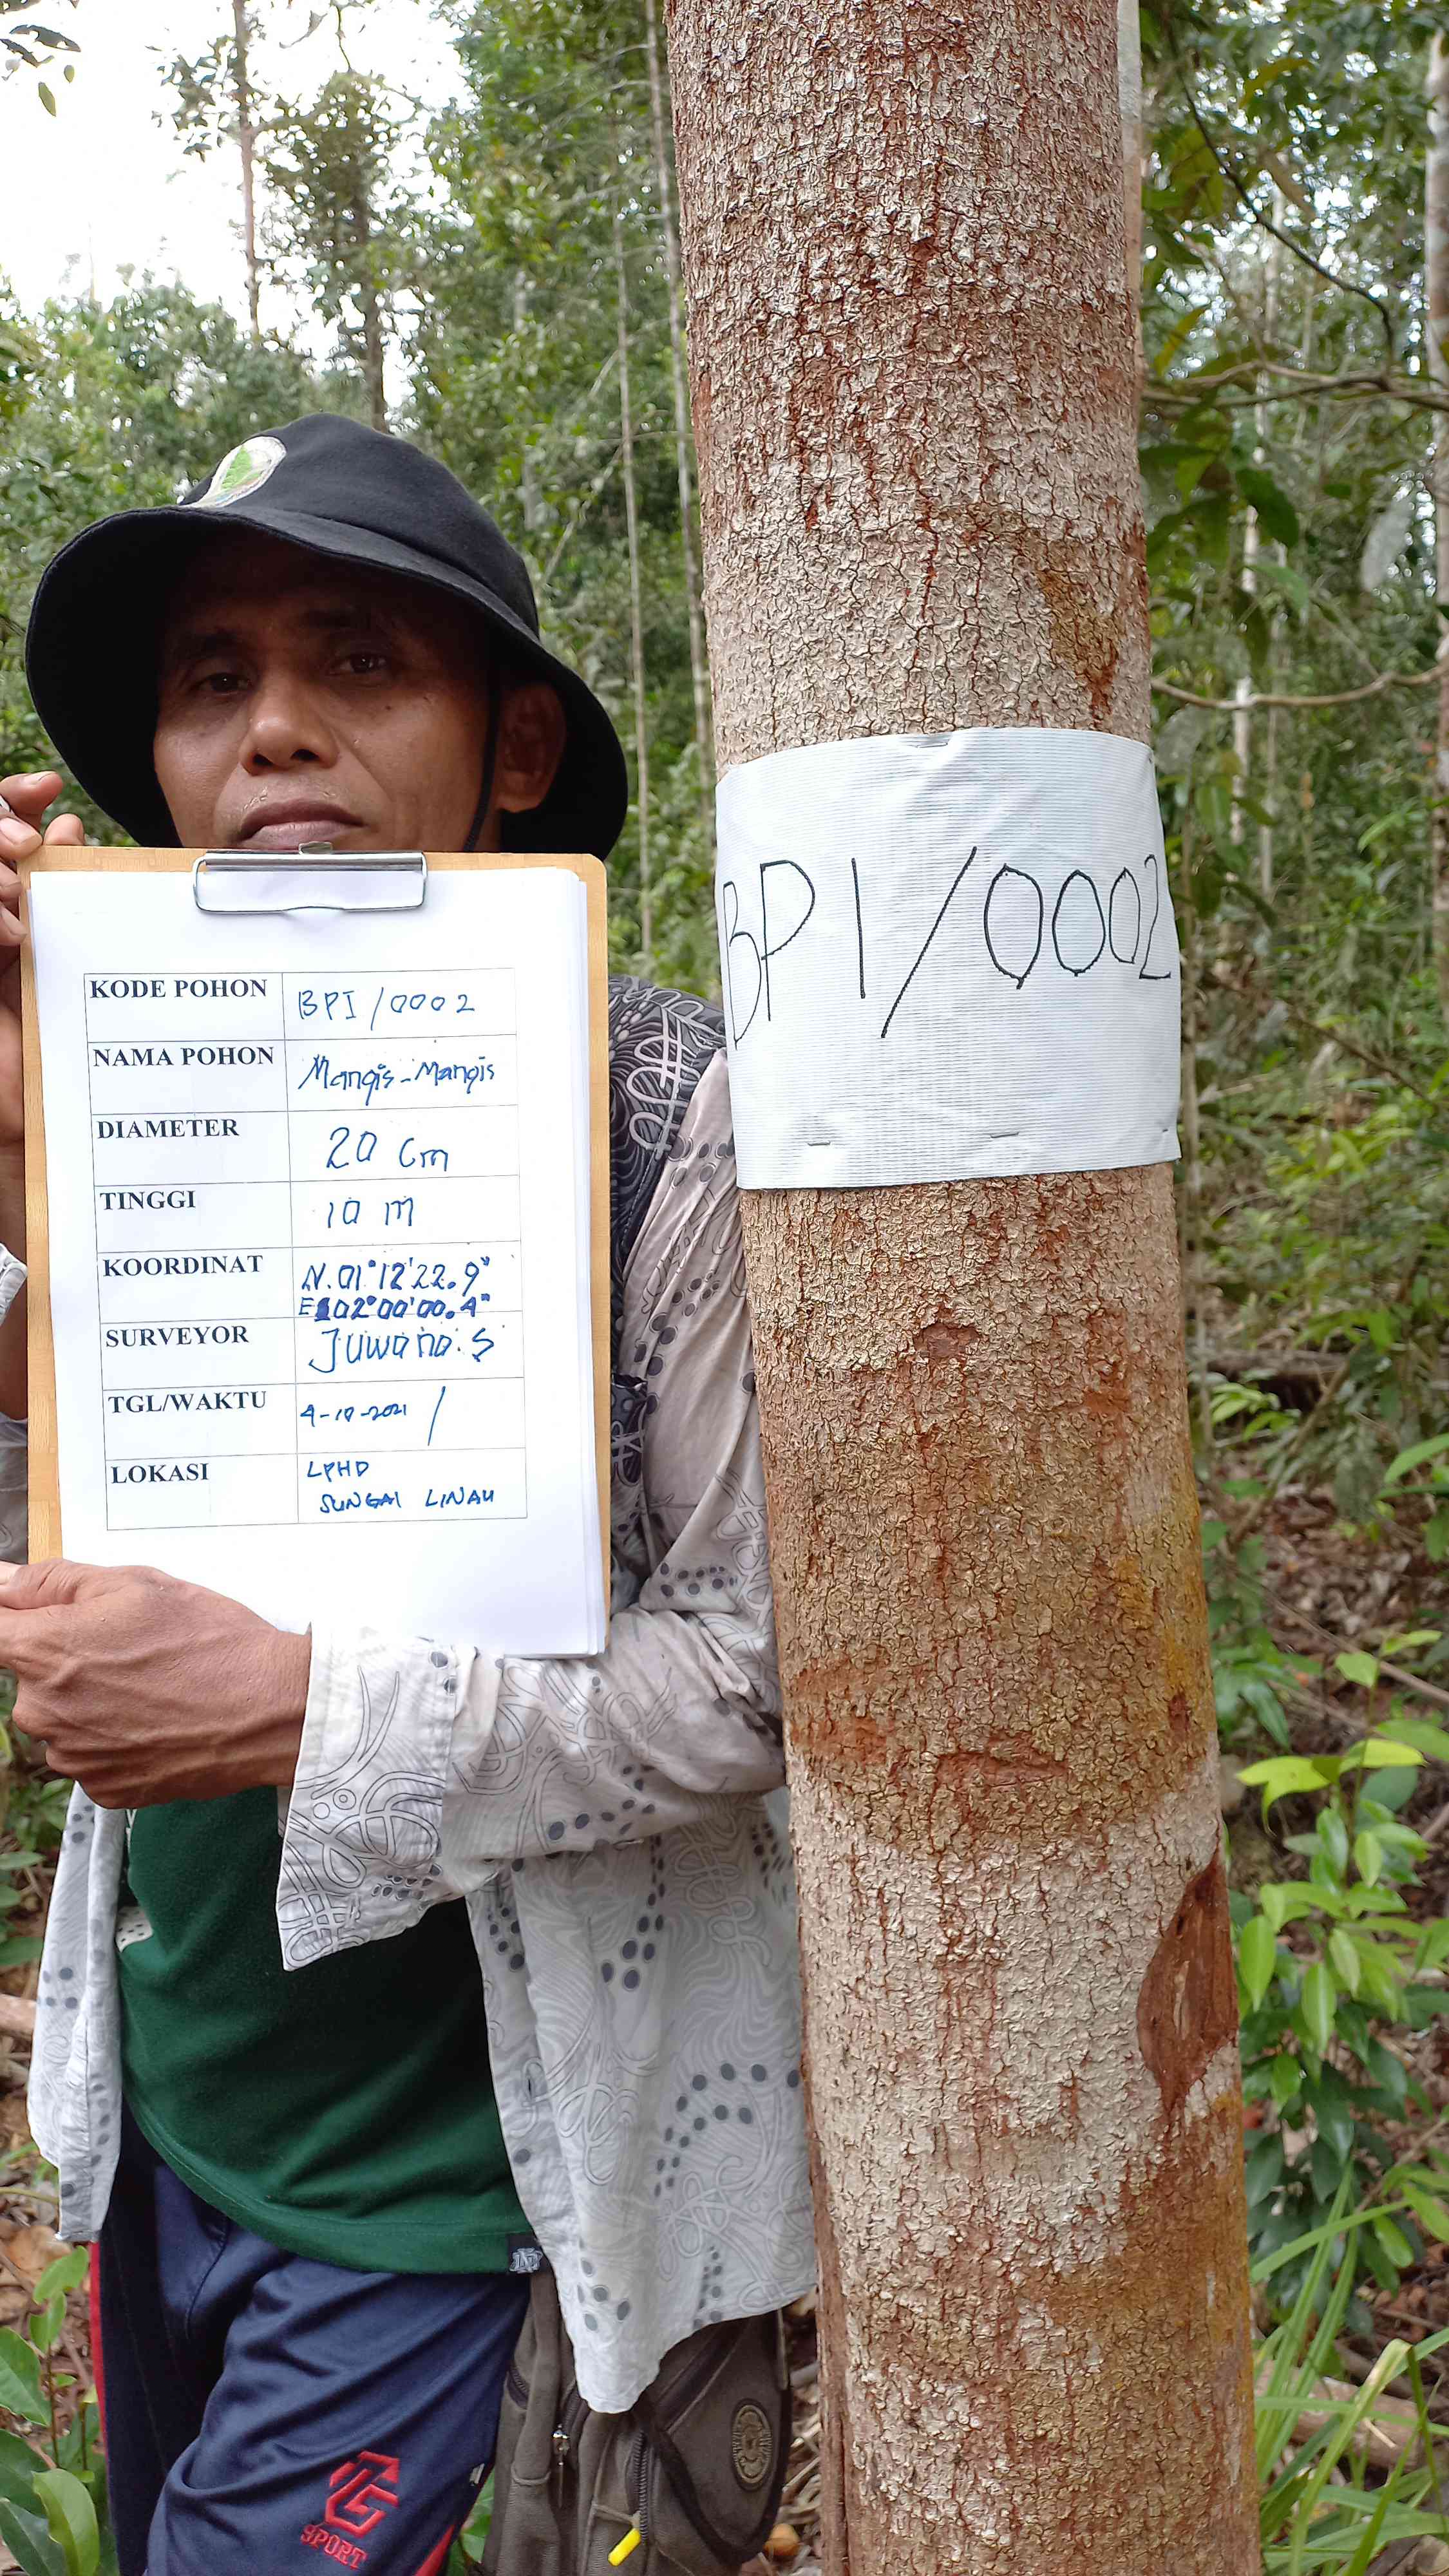 KODE POHON BPI/0002
NAMA POHON Mangis-Mangis
DIAMETER 20 Cm
TINGGI 10 m
KOORDINAT N.01°12'22.9"
E102°00'00.4"
SURVEYOR Juwono.S
TGL/WAKTU 4-10-2021 /
LOKASI LPHD
SUNGAI LINAU
BPI/0002
SPORT